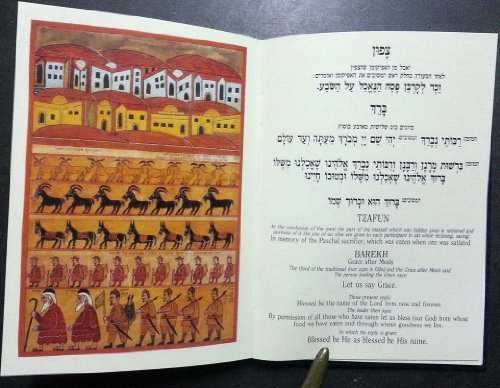 צָפוּן
יאכל מן האפיקומן שהצפין
לאחר הסעודה מחלק ראש המסובים את האפיקומן ואומרים:
זֵכֶר לְקָרְבַּן פֶּסַח הַנֶּאֱכָל עַל הַשֹּׂבַע.
בָּרֵךְ
מוזגים כוס שלישית מארבע כוסות
המזמן: רַבּוֹתַי נְבָרֵךְ המסובים: יְהִי שֵׁם יְיָ מְבֹרָךְ מֵעַתָּה וְעַד עוֹלָם
המזמן: בִּרְשׁוּת מָרָנָן וְרַבָּנָן וְרַבּוֹתַי נְבָרֵךְ אֱלֹהֵינוּ שֶׁאָכַלְנוּ מִשֶּׁלּוֹ
בָּרוּךְ אֱלֹהֵינוּ שֶׁאָכַלְנוּ מִשֶּׁלּוֹ וּבְטוּבוֹ חָיִינוּ
המסובים: בָּרוּךְ הוּא וּבָרוּךְ שְׁמוֹ
TZAFUN
At the conclusion of the meal the part of the matzah which was hidden away is retrieved and
portions of it the size of an olive are given to each participant to eat while reclining, saying:
In memory of the Paschal sacrifice, which was eaten when one was satiated.
BAREKH
Grace after Meals
The third of the traditional four cups is filled and the Grace after Meals said.
The person leading the Grace says:
Let us say Grace.
Those present reply:
Blessed be the name of the Lord from now and forever.
The leader then says:
By permission of all those who have eaten let us bless our God from whose
food we have eaten and through whose goodness we live.
To which the reply is given:
Blessed be He as blessed be His name.